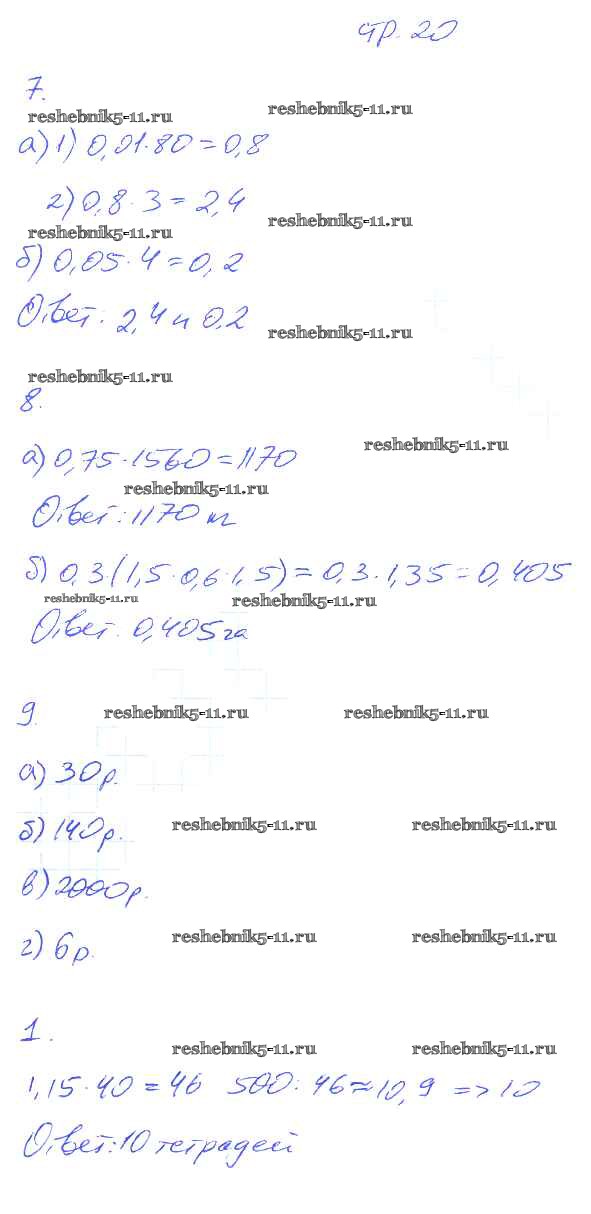 стр. 20
7.
reshebnik5-11.ru reshebnik5-11.ru
а) 1) 0,01·80=0,8
2) 0,8·3=2,4
reshebnik5-11.ru reshebnik5-11.ru
б) 0,05·4=0,2
Ответ: 2,4 и 0,2
reshebnik5-11.ru
reshebnik5-11.ru
8.
reshebnik5-11.ru
а) 0,75·1560=1170
reshebnik5-11.ru
Ответ: 1170 кг
б) 0,3·(1,5·0,6·1,5)=0,3·1,35=0,405
reshebnik5-11.ru reshebnik5-11.ru
Ответ. 0,405 га
9. reshebnik5-11.ru reshebnik5-11.ru
а) 30р.
б) 140р. reshebnik5-11.ru reshebnik5-11.ru
в) 2000р.
г) 6р. reshebnik5-11.ru reshebnik5-11.ru
1. reshebnik5-11.ru reshebnik5-11.ru
1,15·40=46 500:46≈10,9 => 10
Ответ: 10 тетрадей